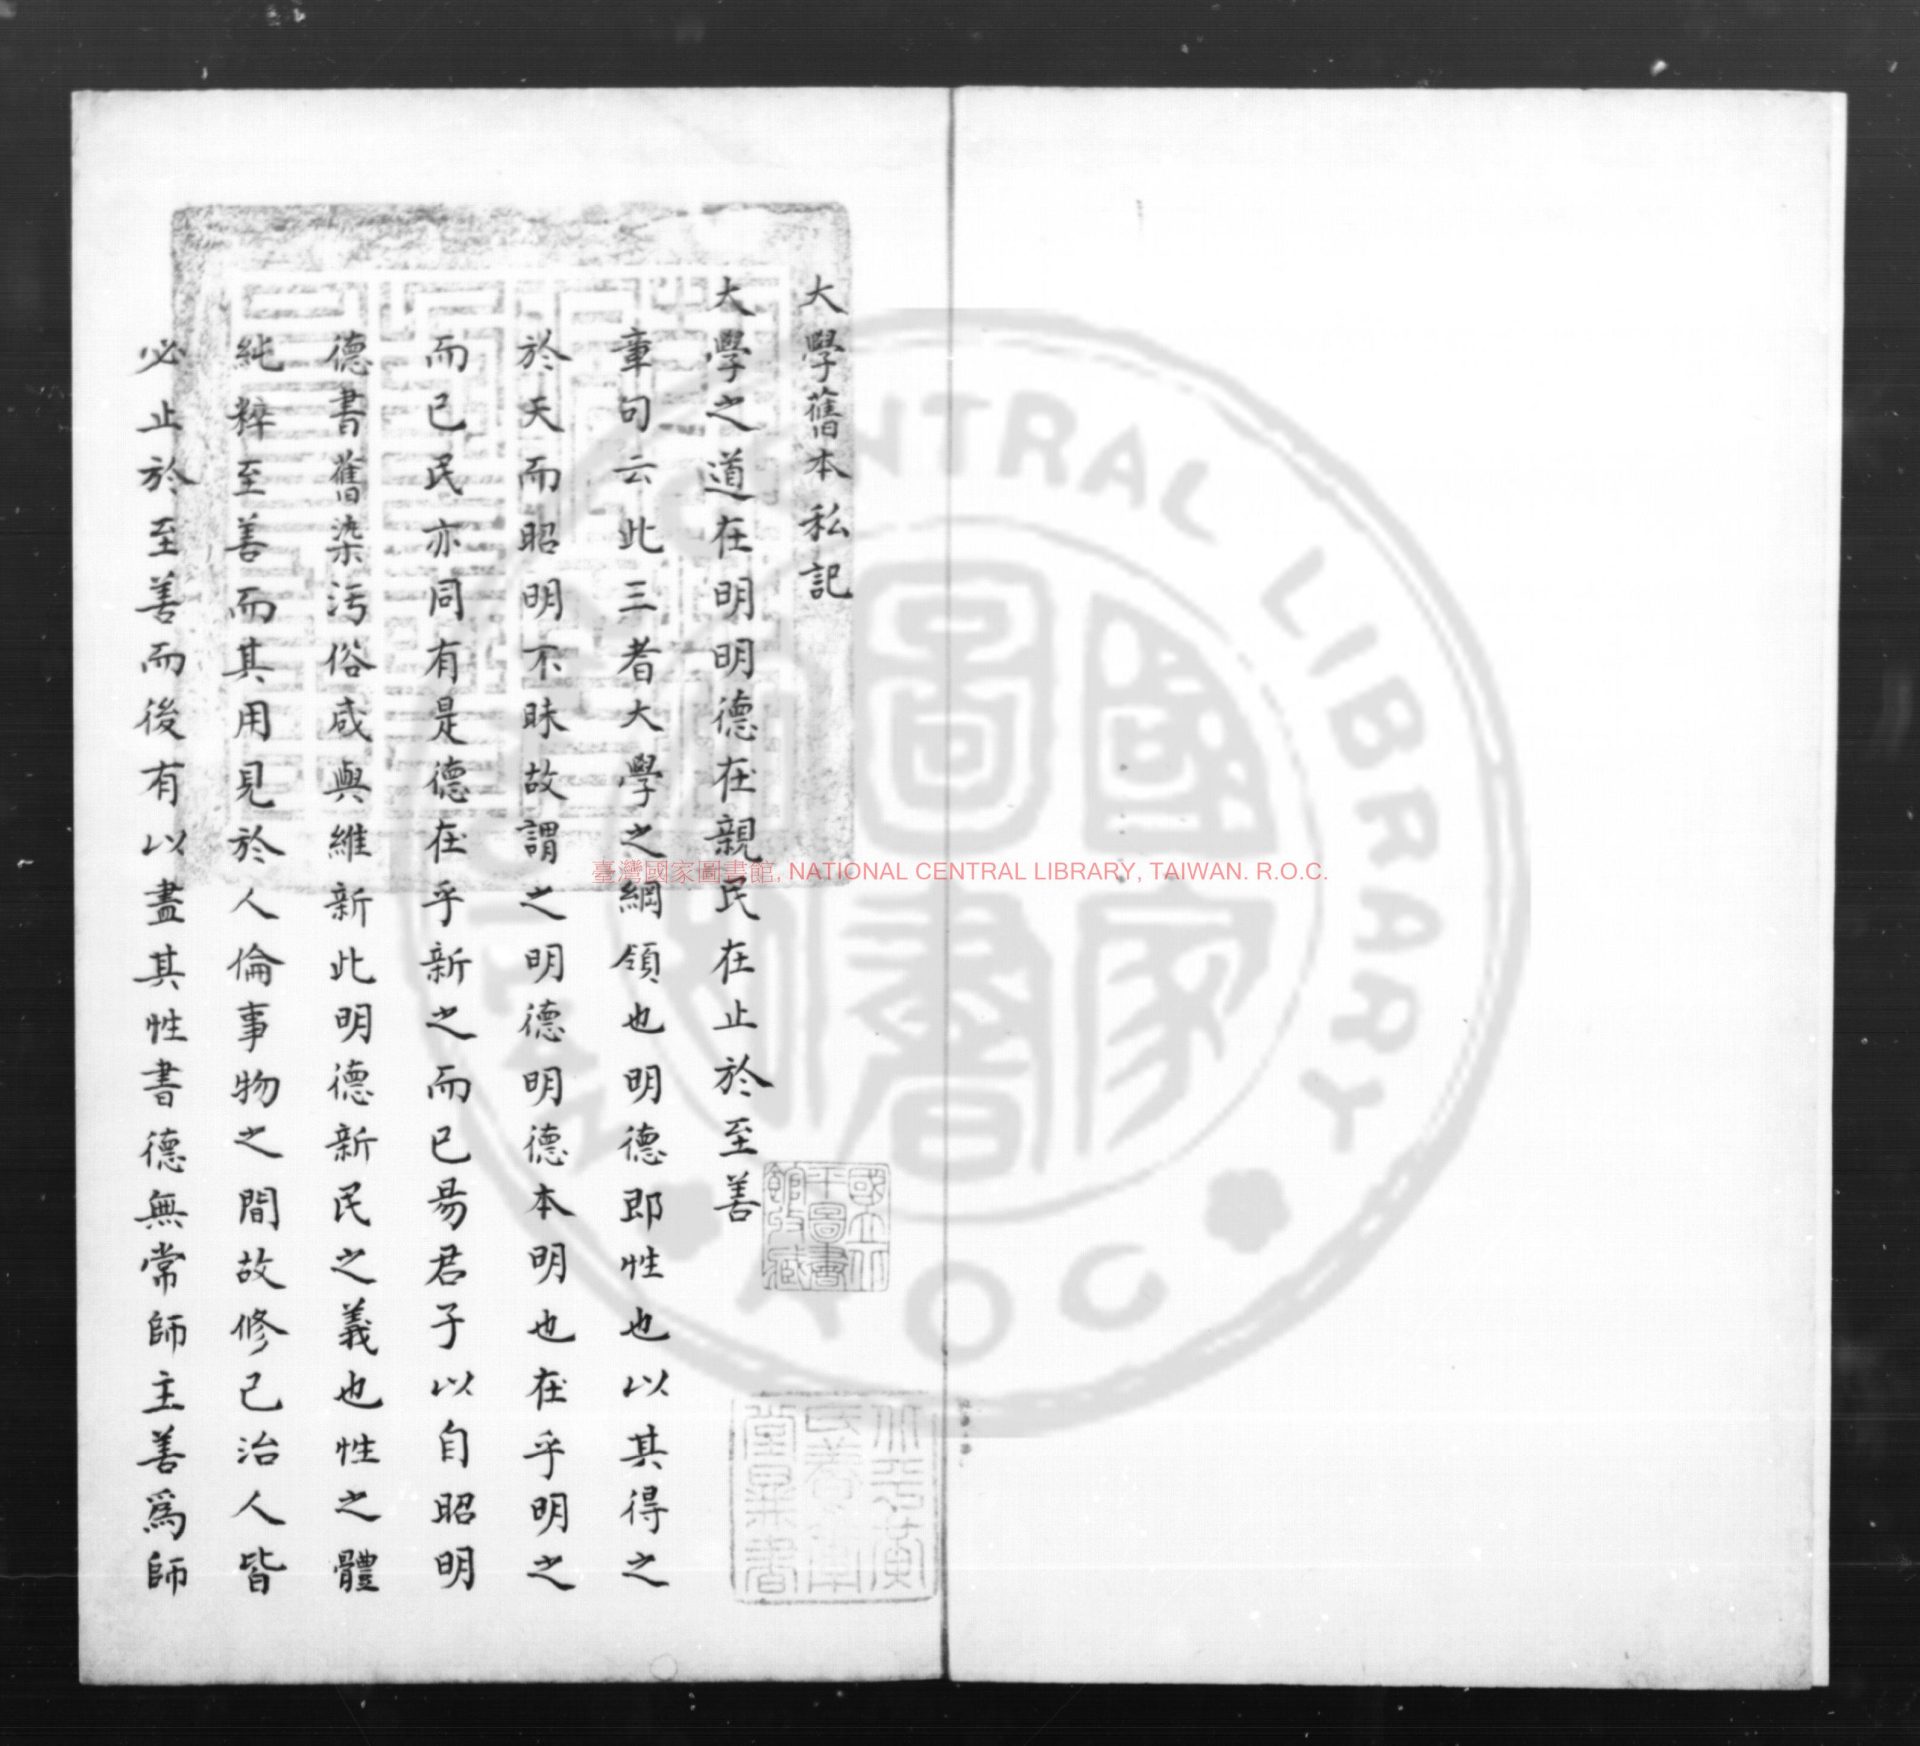 大學舊本私記
大學之道在明明德在親民在止於至善
章句云此三者大學之綱領也明德即性也以其得之
於天而昭明不昧故謂之明德明德本明也在乎明之
而已民亦同有是德在乎新之而已昜君子以自昭明
德書舊染汚俗咸與維新此明德新民之義也性之體
純粹至善而其用見於人倫事物之間故修己治人皆
必止於至善而後有以盡其性書德無常師主善爲師
國立北
平圖書
館收藏
臺灣國家圖書館, NATIONAL CENTRAL LIBRARY, TAIWAN. R.O.C.
CENTRAL LIBRARY
國家
圖書